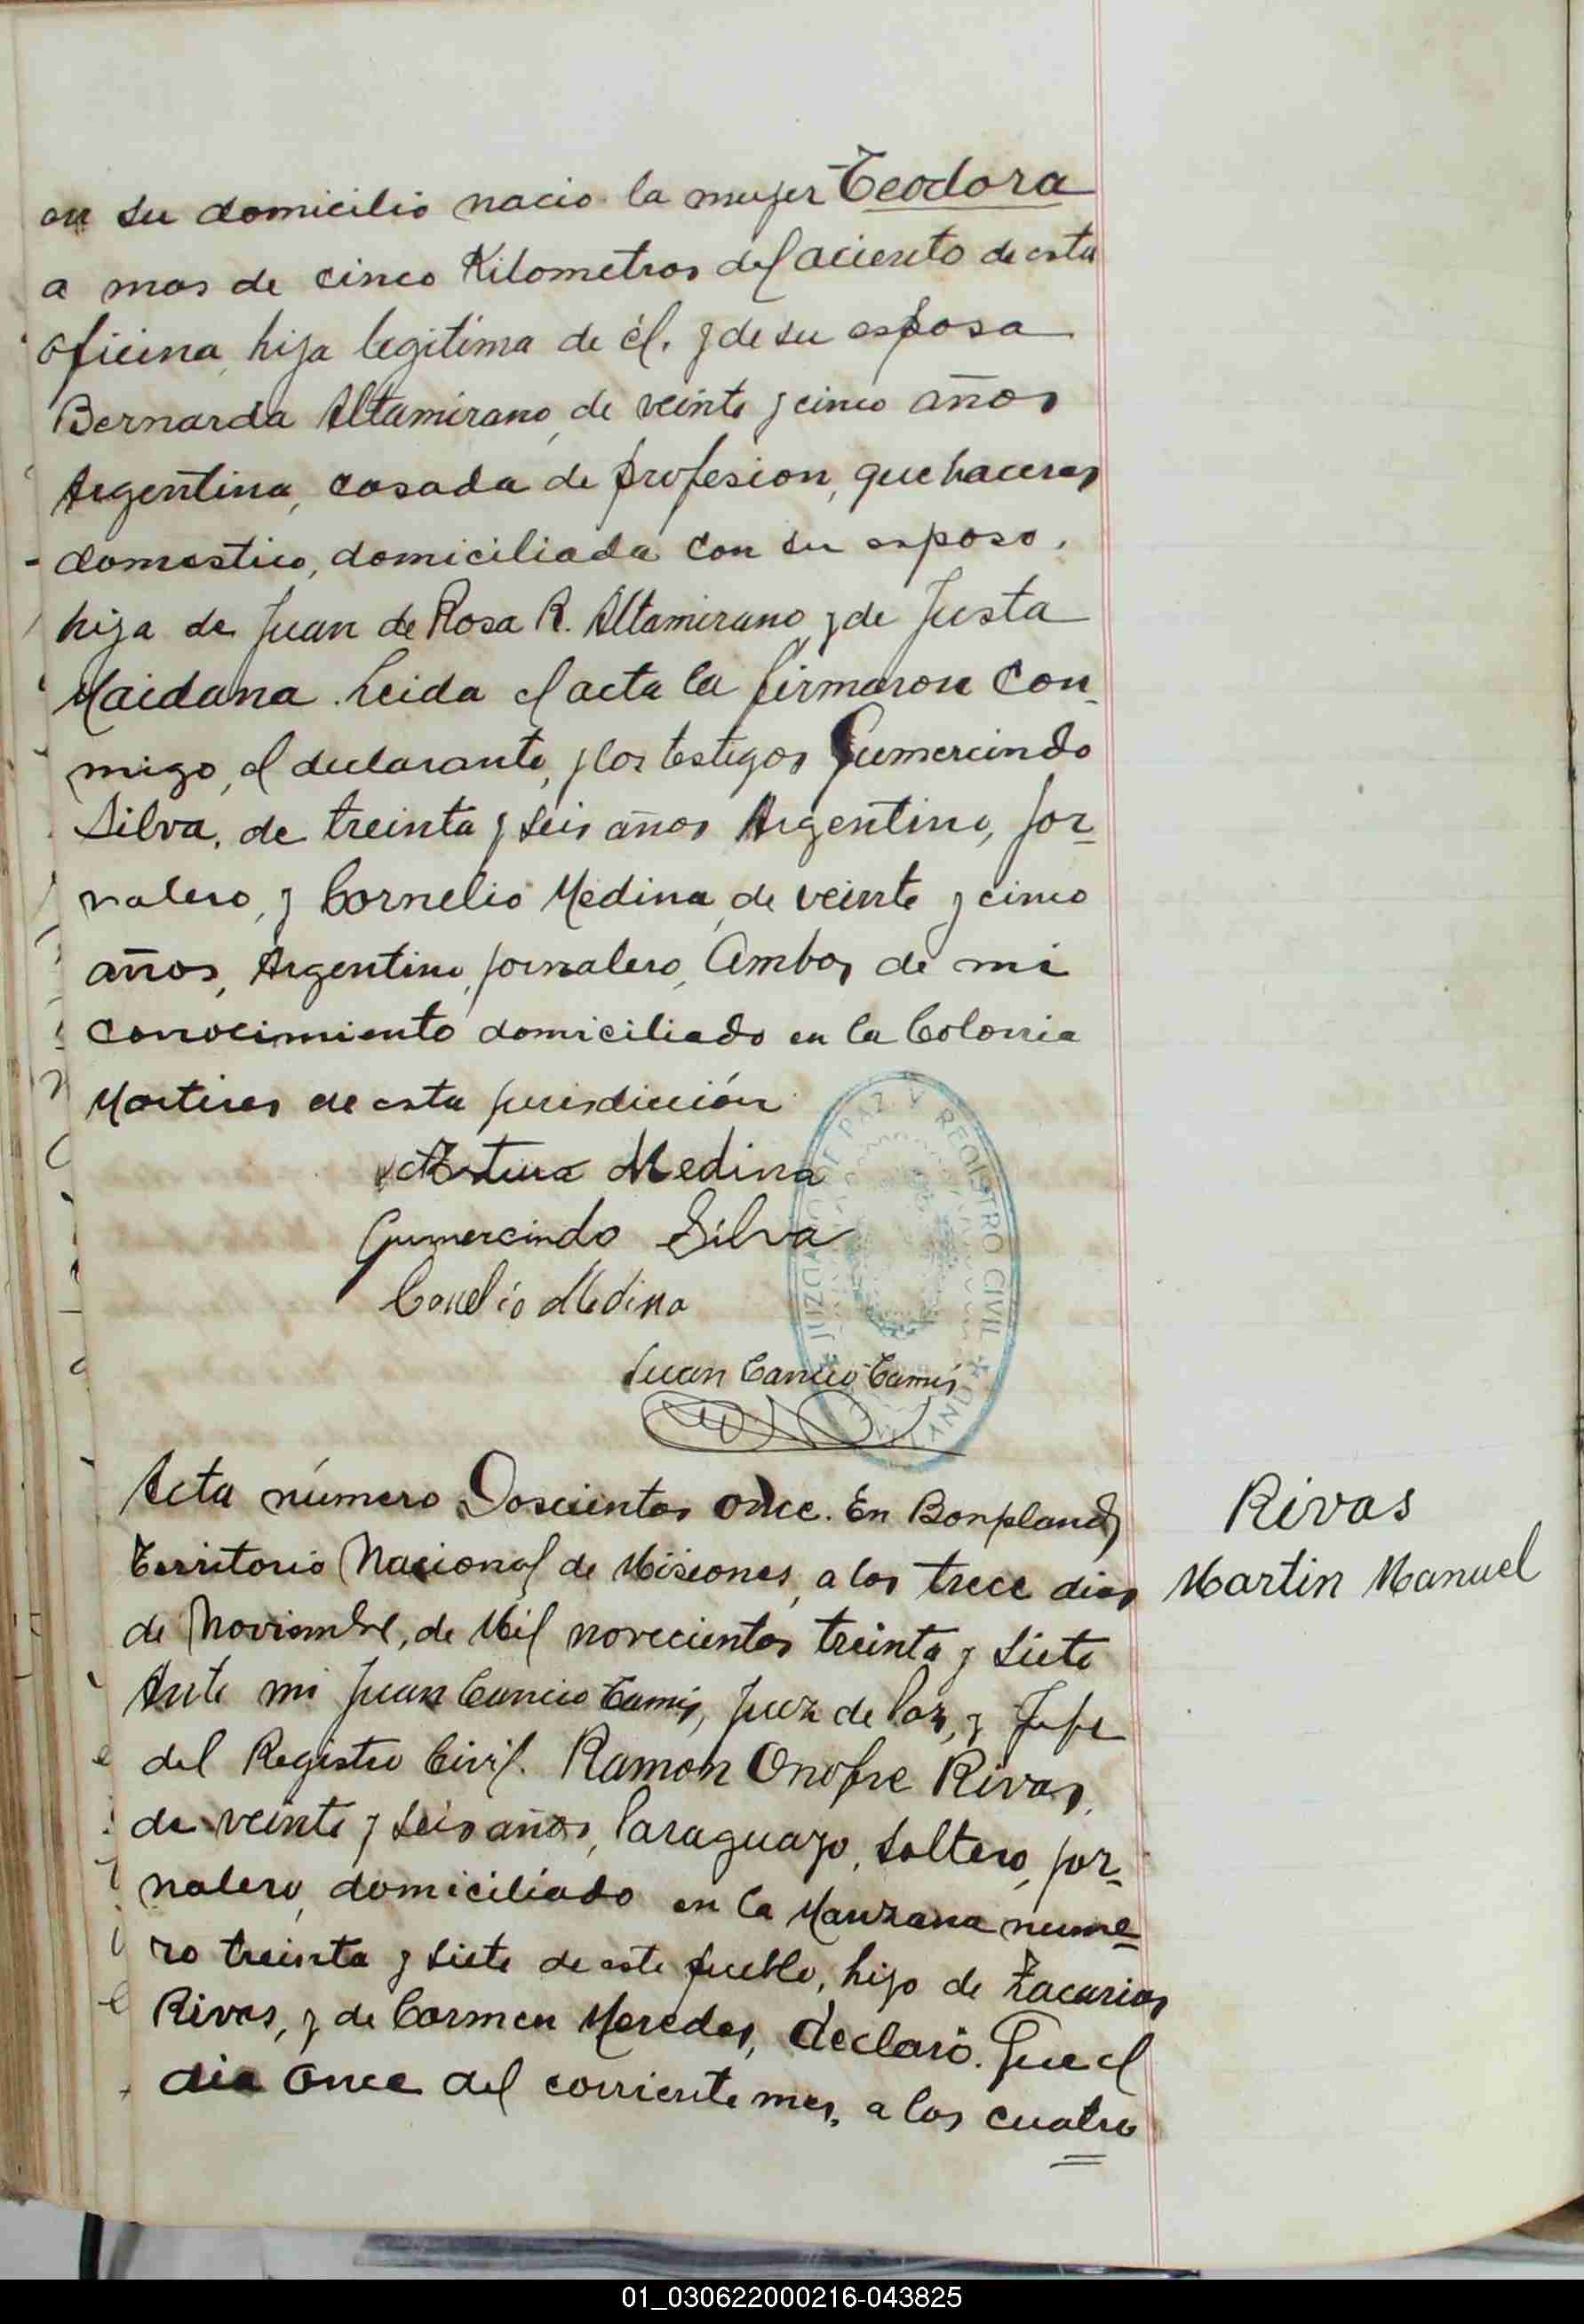 en su domicilio nacio la mujer Teodora
a mas de cinco Kilometros del aciento de esta
oficina, hija legitima de él, y de su esposa
Bernarda Altamirano, de veinte y cinco años
Argentina, casada de profesion, quehaceres
domestico, domiciliada con su esposo,
hija de Juan de Rosa R. Altamirano, y de Justa
Maidana. Leida el acta la firmaron con-
migo, el declarante, y los testigos Gumercindo
Silva, de treinta y seis años Argentino, jor-
nalero, y Cornelio Medina, de veinte y cinco
años, Argentino, jornalero, Ambos de mi
conocimiento domiciliado en la Colonia
Martires de esta jurisdicción
Medina
Gumercindo Silva
Cornelio Medina
Juan Cancio Tamis
JUZGADO DE PAZ Y REGISTRO CIVIL
Acta número Doscientos once. En Bonpland,
Territorio Nacional de Misiones, a los trece dias
de Noviembre, de Mil novecientos treinta y siete
Ante mi Juan Cancio Tamis, Juez de Paz, y Jefe
del Registro Civil. Ramon Onofre Rivas,
de veinte y seis años, Paraguayo, soltero, jor-
nalero, domiciliado en la Manzana nume-
ro treinta y siete de este pueblo, hijo de Zacarias
Rivas, y de Carmen Meredes, declaró. Que el
dia once del corriente mes, a las cuatro
Rivas
Martin Manuel
01_030622000216-043825